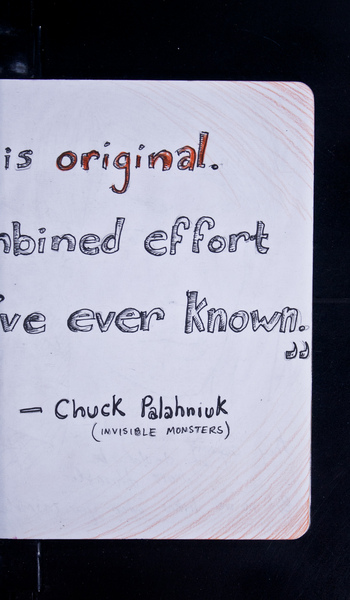 is original.
mbined effort
've ever known.”
— Chuck Palahniuk
(INVISIBLE MONSTERS)